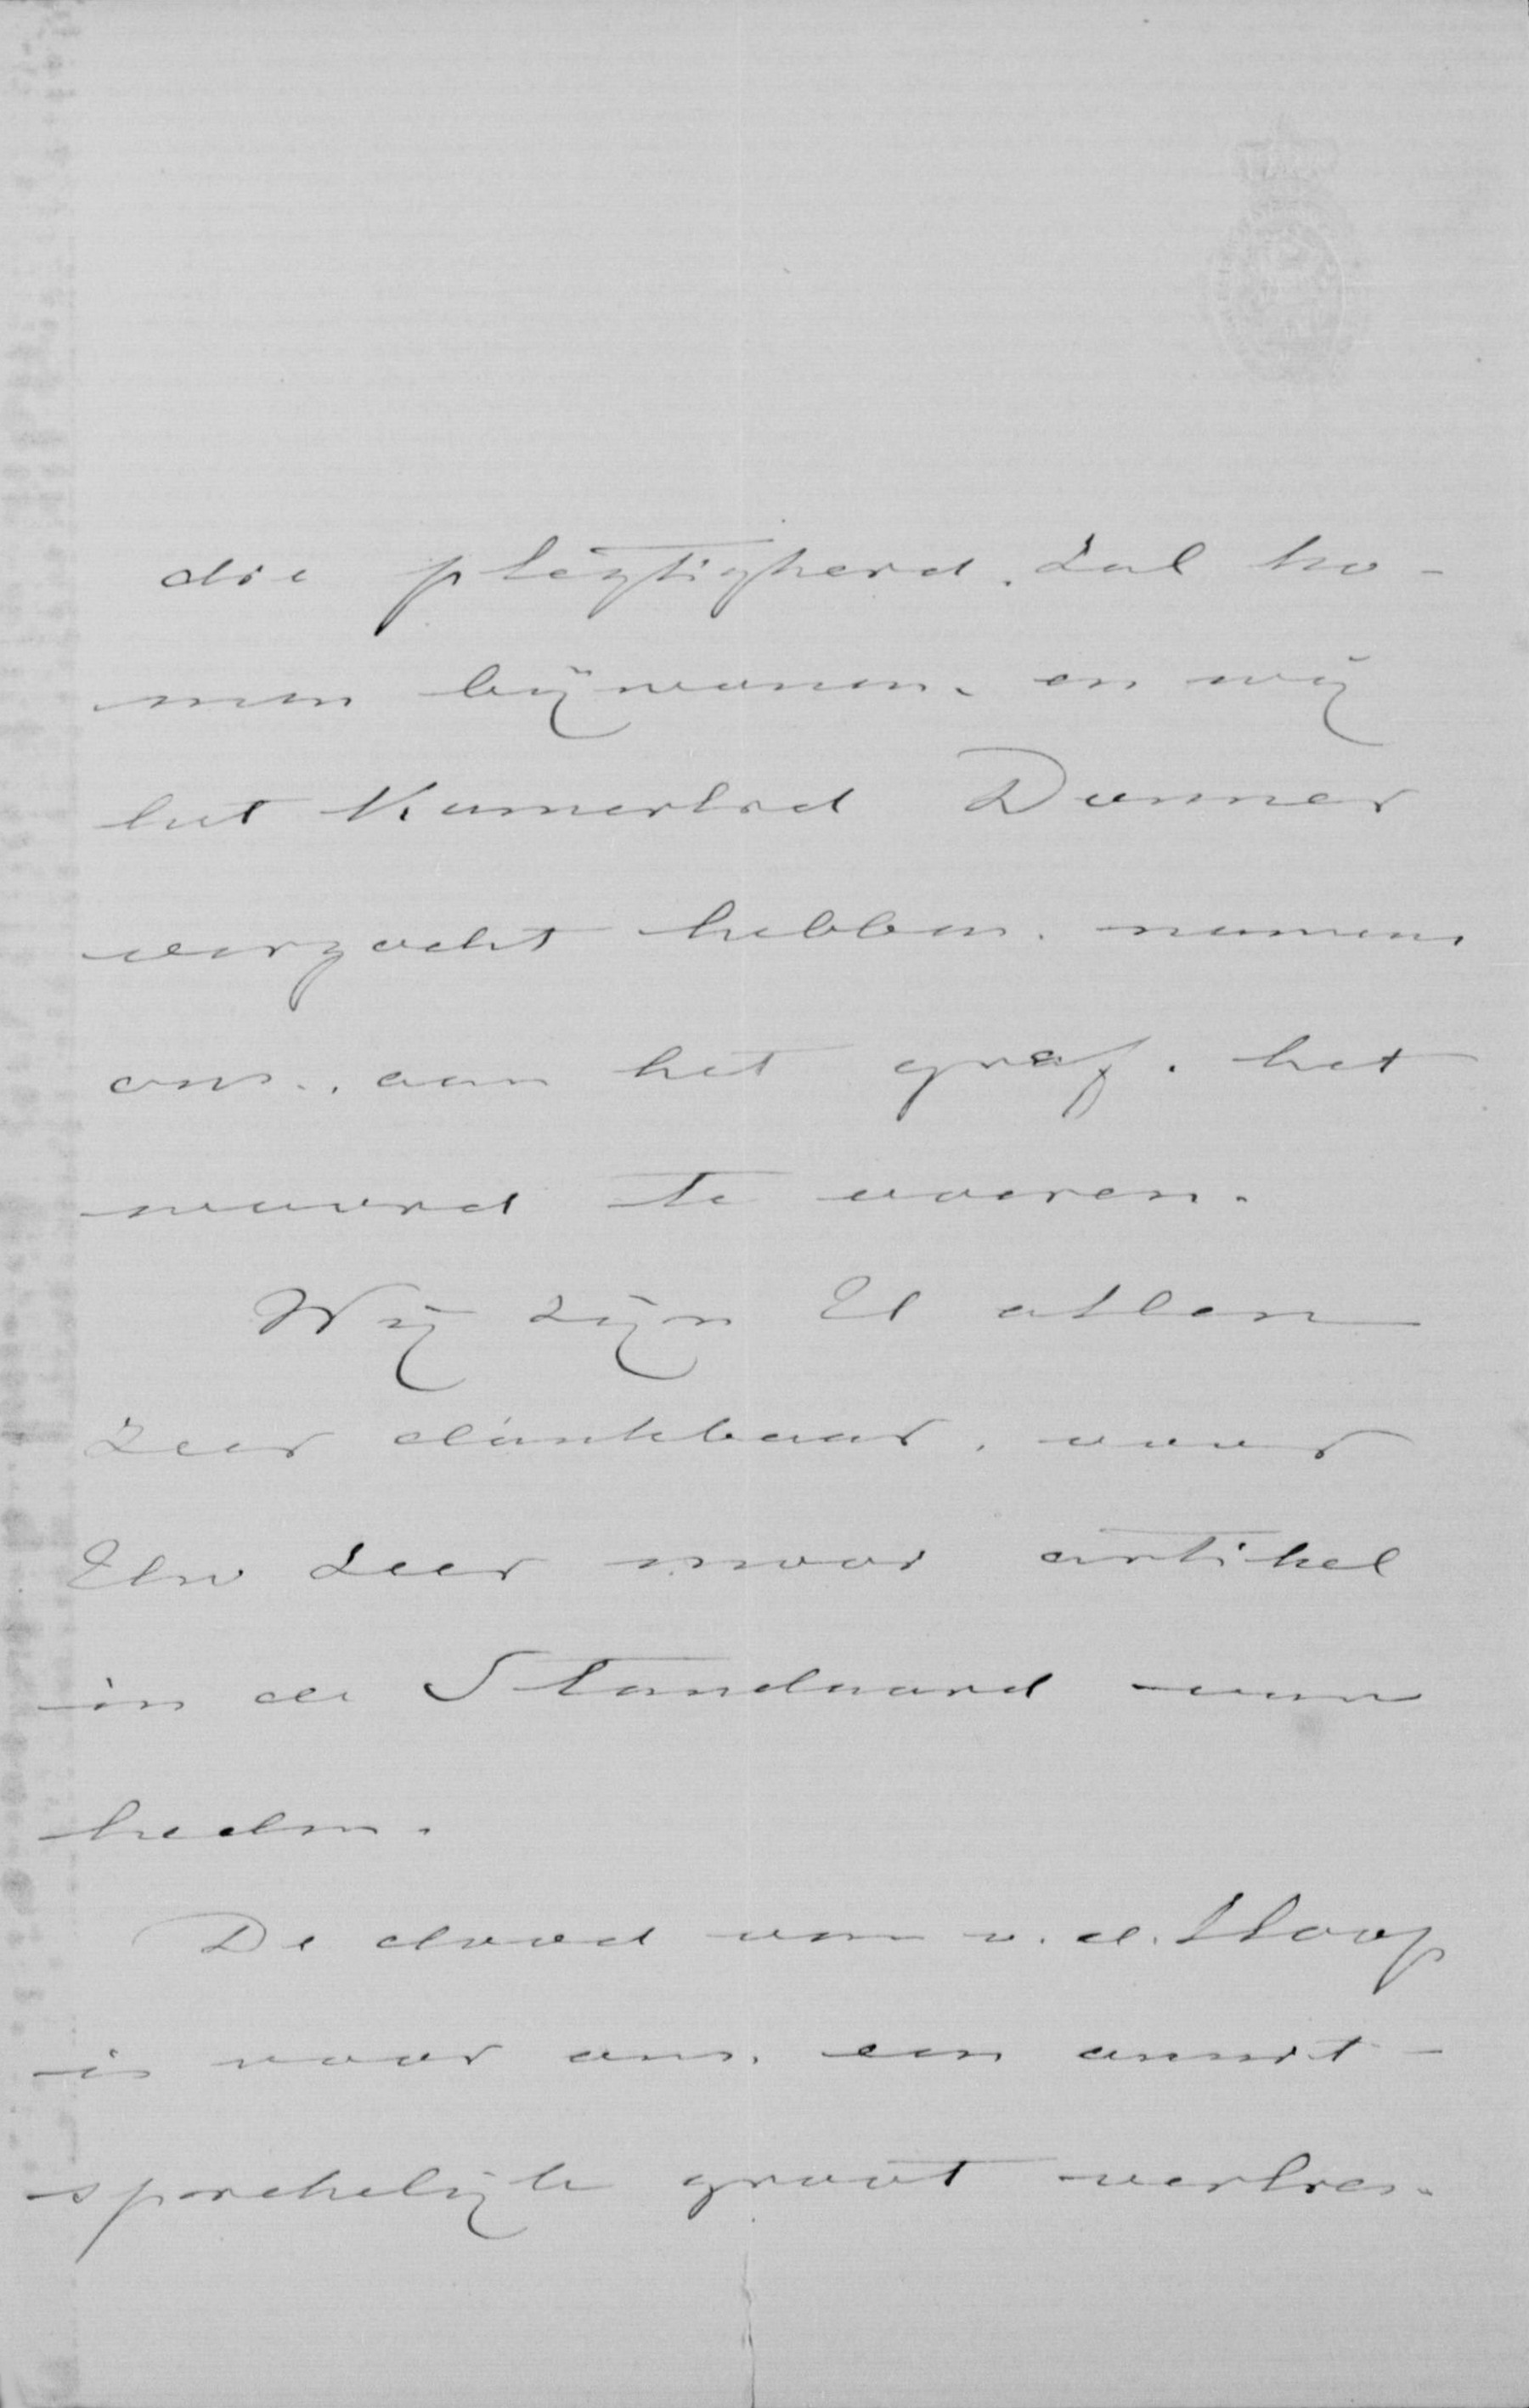 die plegtigheid. zal ko-
men bijwonen. en wij
het Kamerlid Donner
verzocht hebben. namens
ons., aan het graf. het
woord te voeren.
Wij zijn U allen
zeer dankbaar. voor
Uw zeer mooi artikel
in de Standaard van
heden.
De dood van v. d. Hoop
is voor ons. een onuit-
sprekelijk groot verlies.